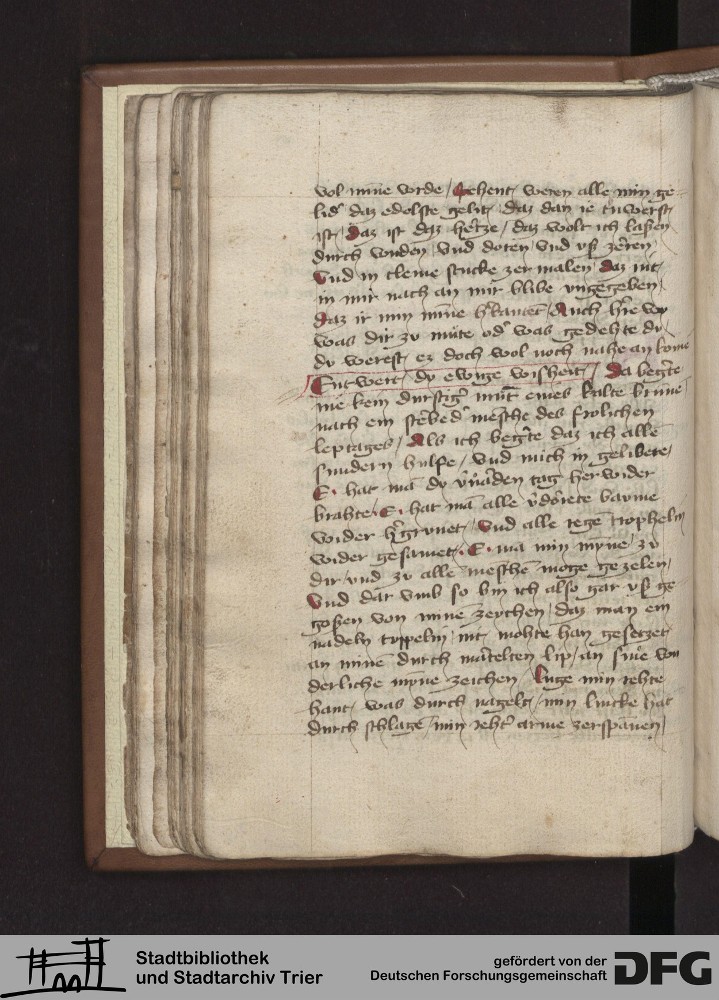 vol mīne wrde / sehent weren alle min ge-
lid' daz edolste gelit / daz dan ie truwerst
ist / Daz ist daz hertze / daz wolt ich laßen
durch wnden / vnd doten / vnd vff zerren
Vnd in cleine stucke zer malen / daz nit
in mir nach an mir blibe vngegeben /
Daz ir min mīne h'kanet / Auch h're wy
was dir zv müte od' was gedehte dv
dv werest ez doch wol noch nahe an kome
Entwert / dv ewige wisheit / Da begerte
nie kein durstig' mūt eines kalte brūne
nach ein sterbed' mesche des frolichen
leptages / Als ich begerte daz ich allē
sundern hulfe / vnd mich in gelibete /
E · hat mā dy v'gāden tag herwider
brahte · E · hat mā alle v'dorrete baume
wider h'grunet / Vnd alle rege tropheln
wider gesamet · E · ma min mȳne / zv
dir / vnd zv alle mesche moge gezelen /
Vnd dar vmb so bin ich also gar vß ge-
goßen von mine zeychen / daz man ein
nadeln trppeln / nit mohte han gesetzet
an minē durch martelten lip / an sine son
derliche mȳne zeichen / Luge min rehte
hant / was durch nagelt / min lincke hat
durch schlagē / min reht' arme zerspānen /
Stadtbibliothek
und Stadtarchiv Trier
gefördert von der
Deutschen Forschungsgemeinschaft
DFG